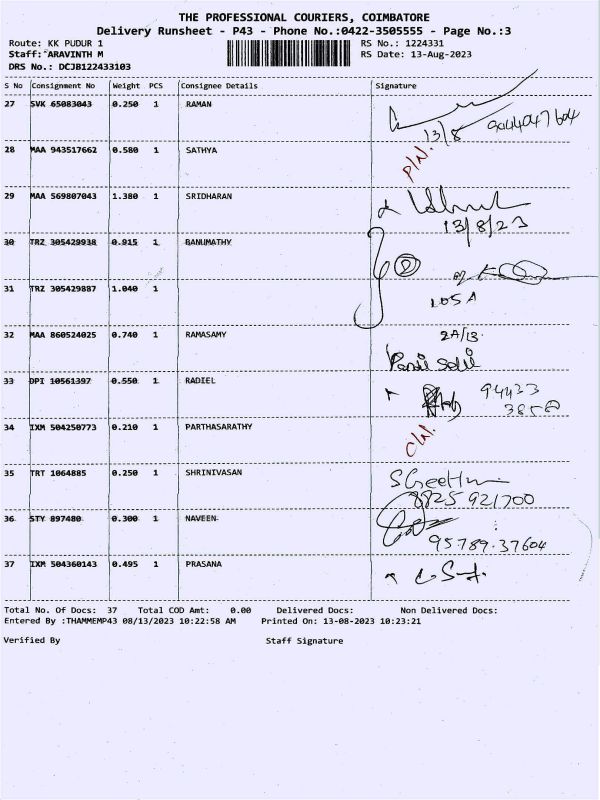 THE PROFESSIONAL COURIERS, COIMBATORE
Delivery Runsheet - P43 - Phone No.:0422-3505555 - Page No.:3
Route: KK PUDUR 1 RS No.: 1224331
Staff: ARAVINTH M RS Date: 13-Aug-2023
DRS No.: DCJB122433103
S No Consignment No Weight PCS Consignee Details Signature
27 SVK 65083043 0.250 1 RAMAN
13/8 9044047604
28 MAA 943517662 0.580 1 SATHYA
P/N.
29 MAA 569807043 1.380 1 SRIDHARAN
13/8/23
30 TRZ 305429938 0.915 1 BANUMATHY
2
31 TRZ 305429887 1.040 1
105A
32 MAA 860524025 0.740 1 RAMASAMY
2A/13.
33 DPI 10561397 0.550 1 RADIEL
94433
3858
34 IXM 504250773 0.210 1 PARTHASARATHY
C/N.
35 TRT 1064885 0.250 1 SHRINIVASAN
8825 921700
36 STY 897480 0.300 1 NAVEEN
95789.37604
37 IXM 504360143 0.495 1 PRASANA
Total No. Of Docs: 37 Total COD Amt: 0.00 Delivered Docs: Non Delivered Docs:
Entered By :THAMMEMP43 08/13/2023 10:22:58 AM Printed On: 13-08-2023 10:23:21
Verified By Staff Signature